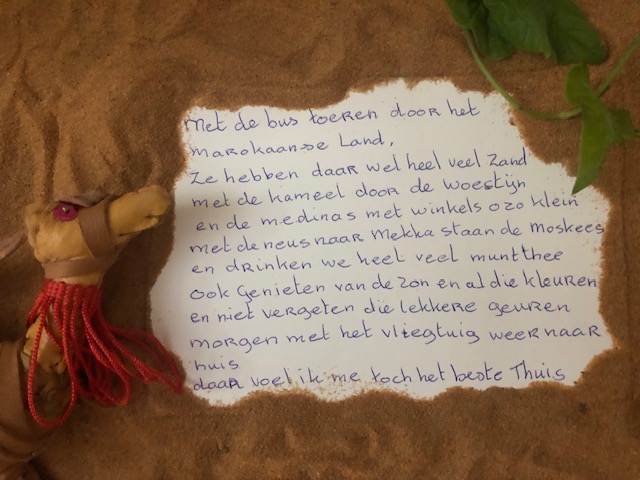 Met de bus toeren door het
marokaanse Land,
Ze hebben daar wel heel veel zand
met de kameel door de woestijn
en de medinas met winkels ozo klein
met de neus naar Mekka staan de Moskees
en drinken we heel veel muntthee
ook genieten van de zon en al die kleuren
en niet vergeten die lekkere geuren
morgen met het vliegtuig weer naar
huis
daar voel ik me toch het beste Thuis